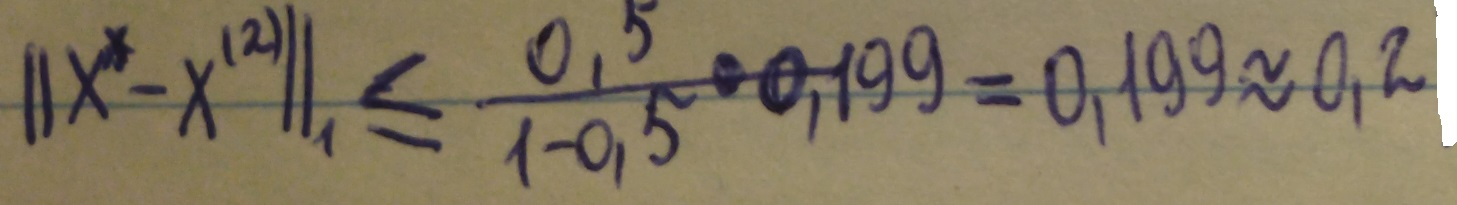 ||X* - X^(2)||_1 ≤ 0,5/(1-0,5) • 0,199 = 0,199 ≈ 0,2